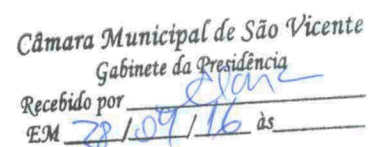 Câmara Municipal de São Vicente
Gabinete da Presidência
Recebido por
EM 28/09/16 às